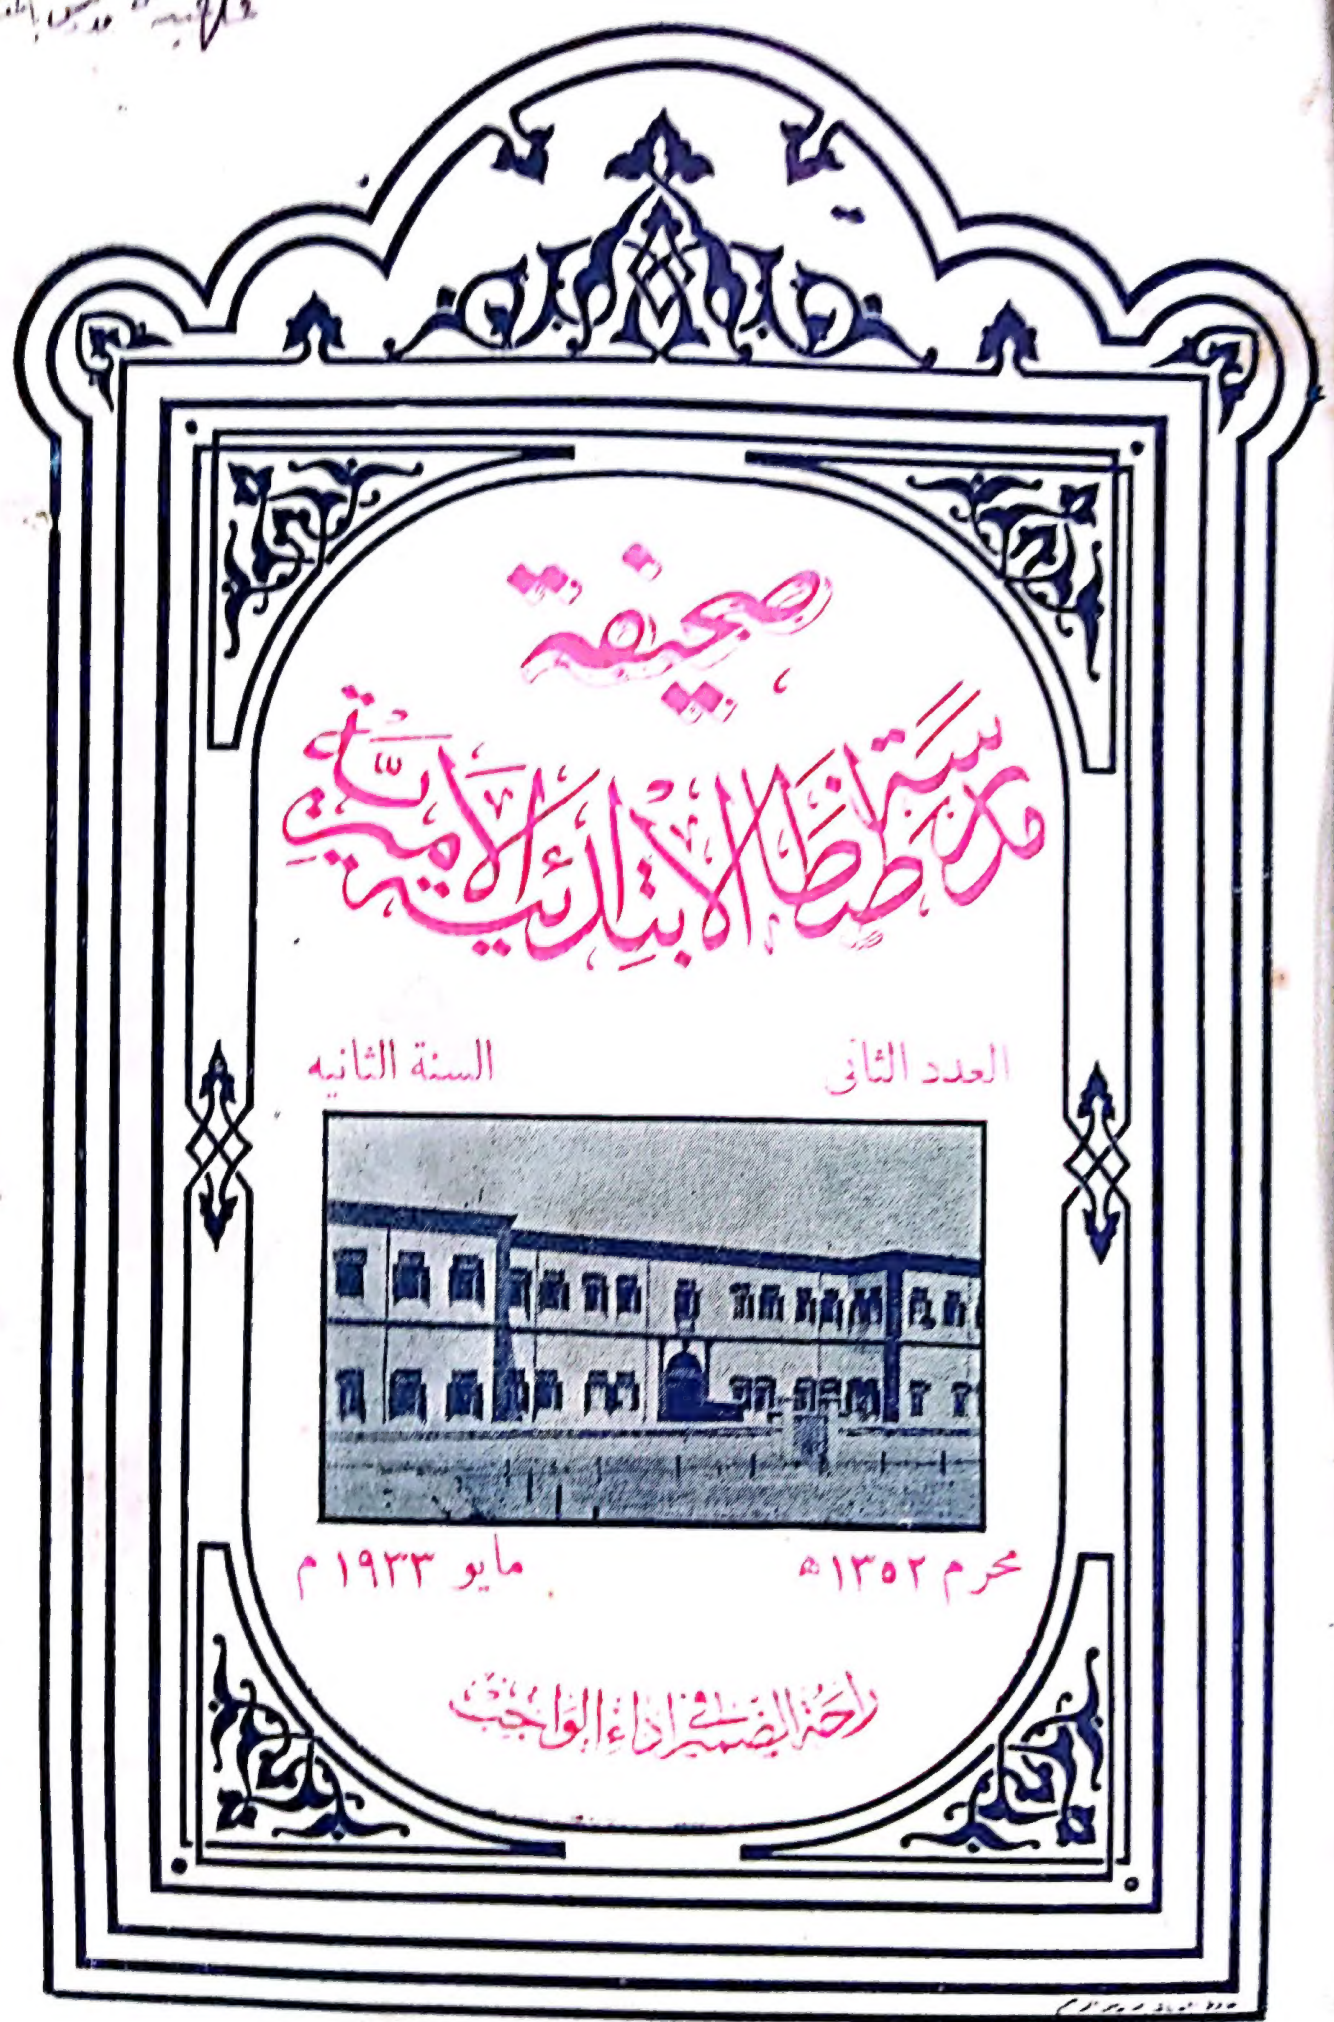 صحيفة
مدرسة طنطا الابتدائية الأميرية
العدد الثانى السنة الثانيه
محرم ١٣٥٢ ھ مايو ١٩٣٣ م
راحة الضمير في اداء الواجب